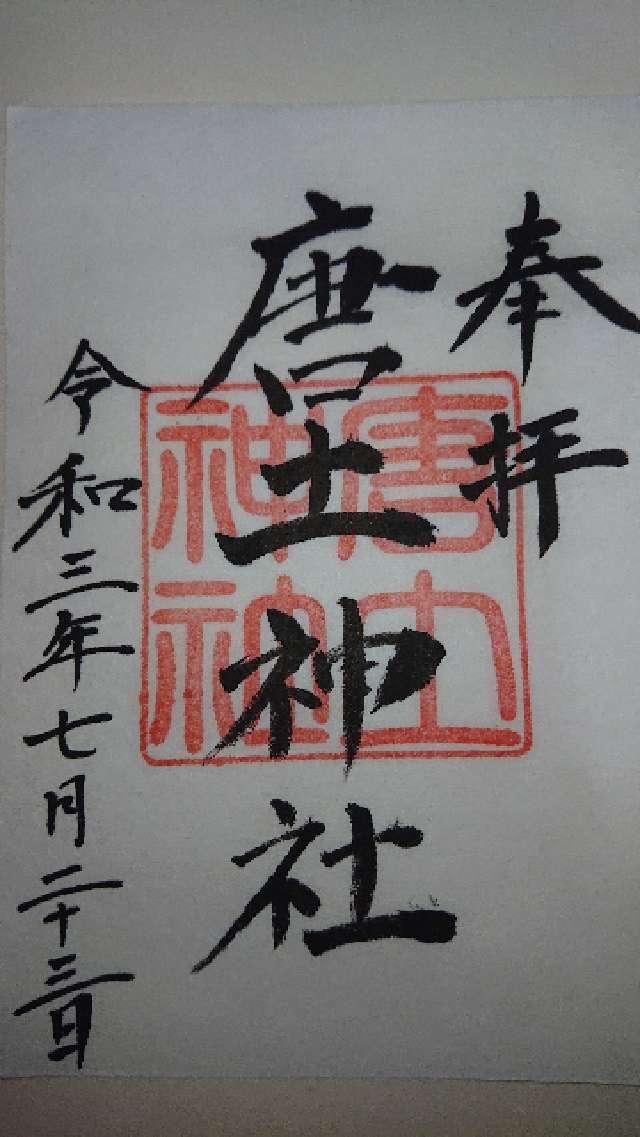 奉拝
唐土神社
唐土神社
令和三年七月二十三日